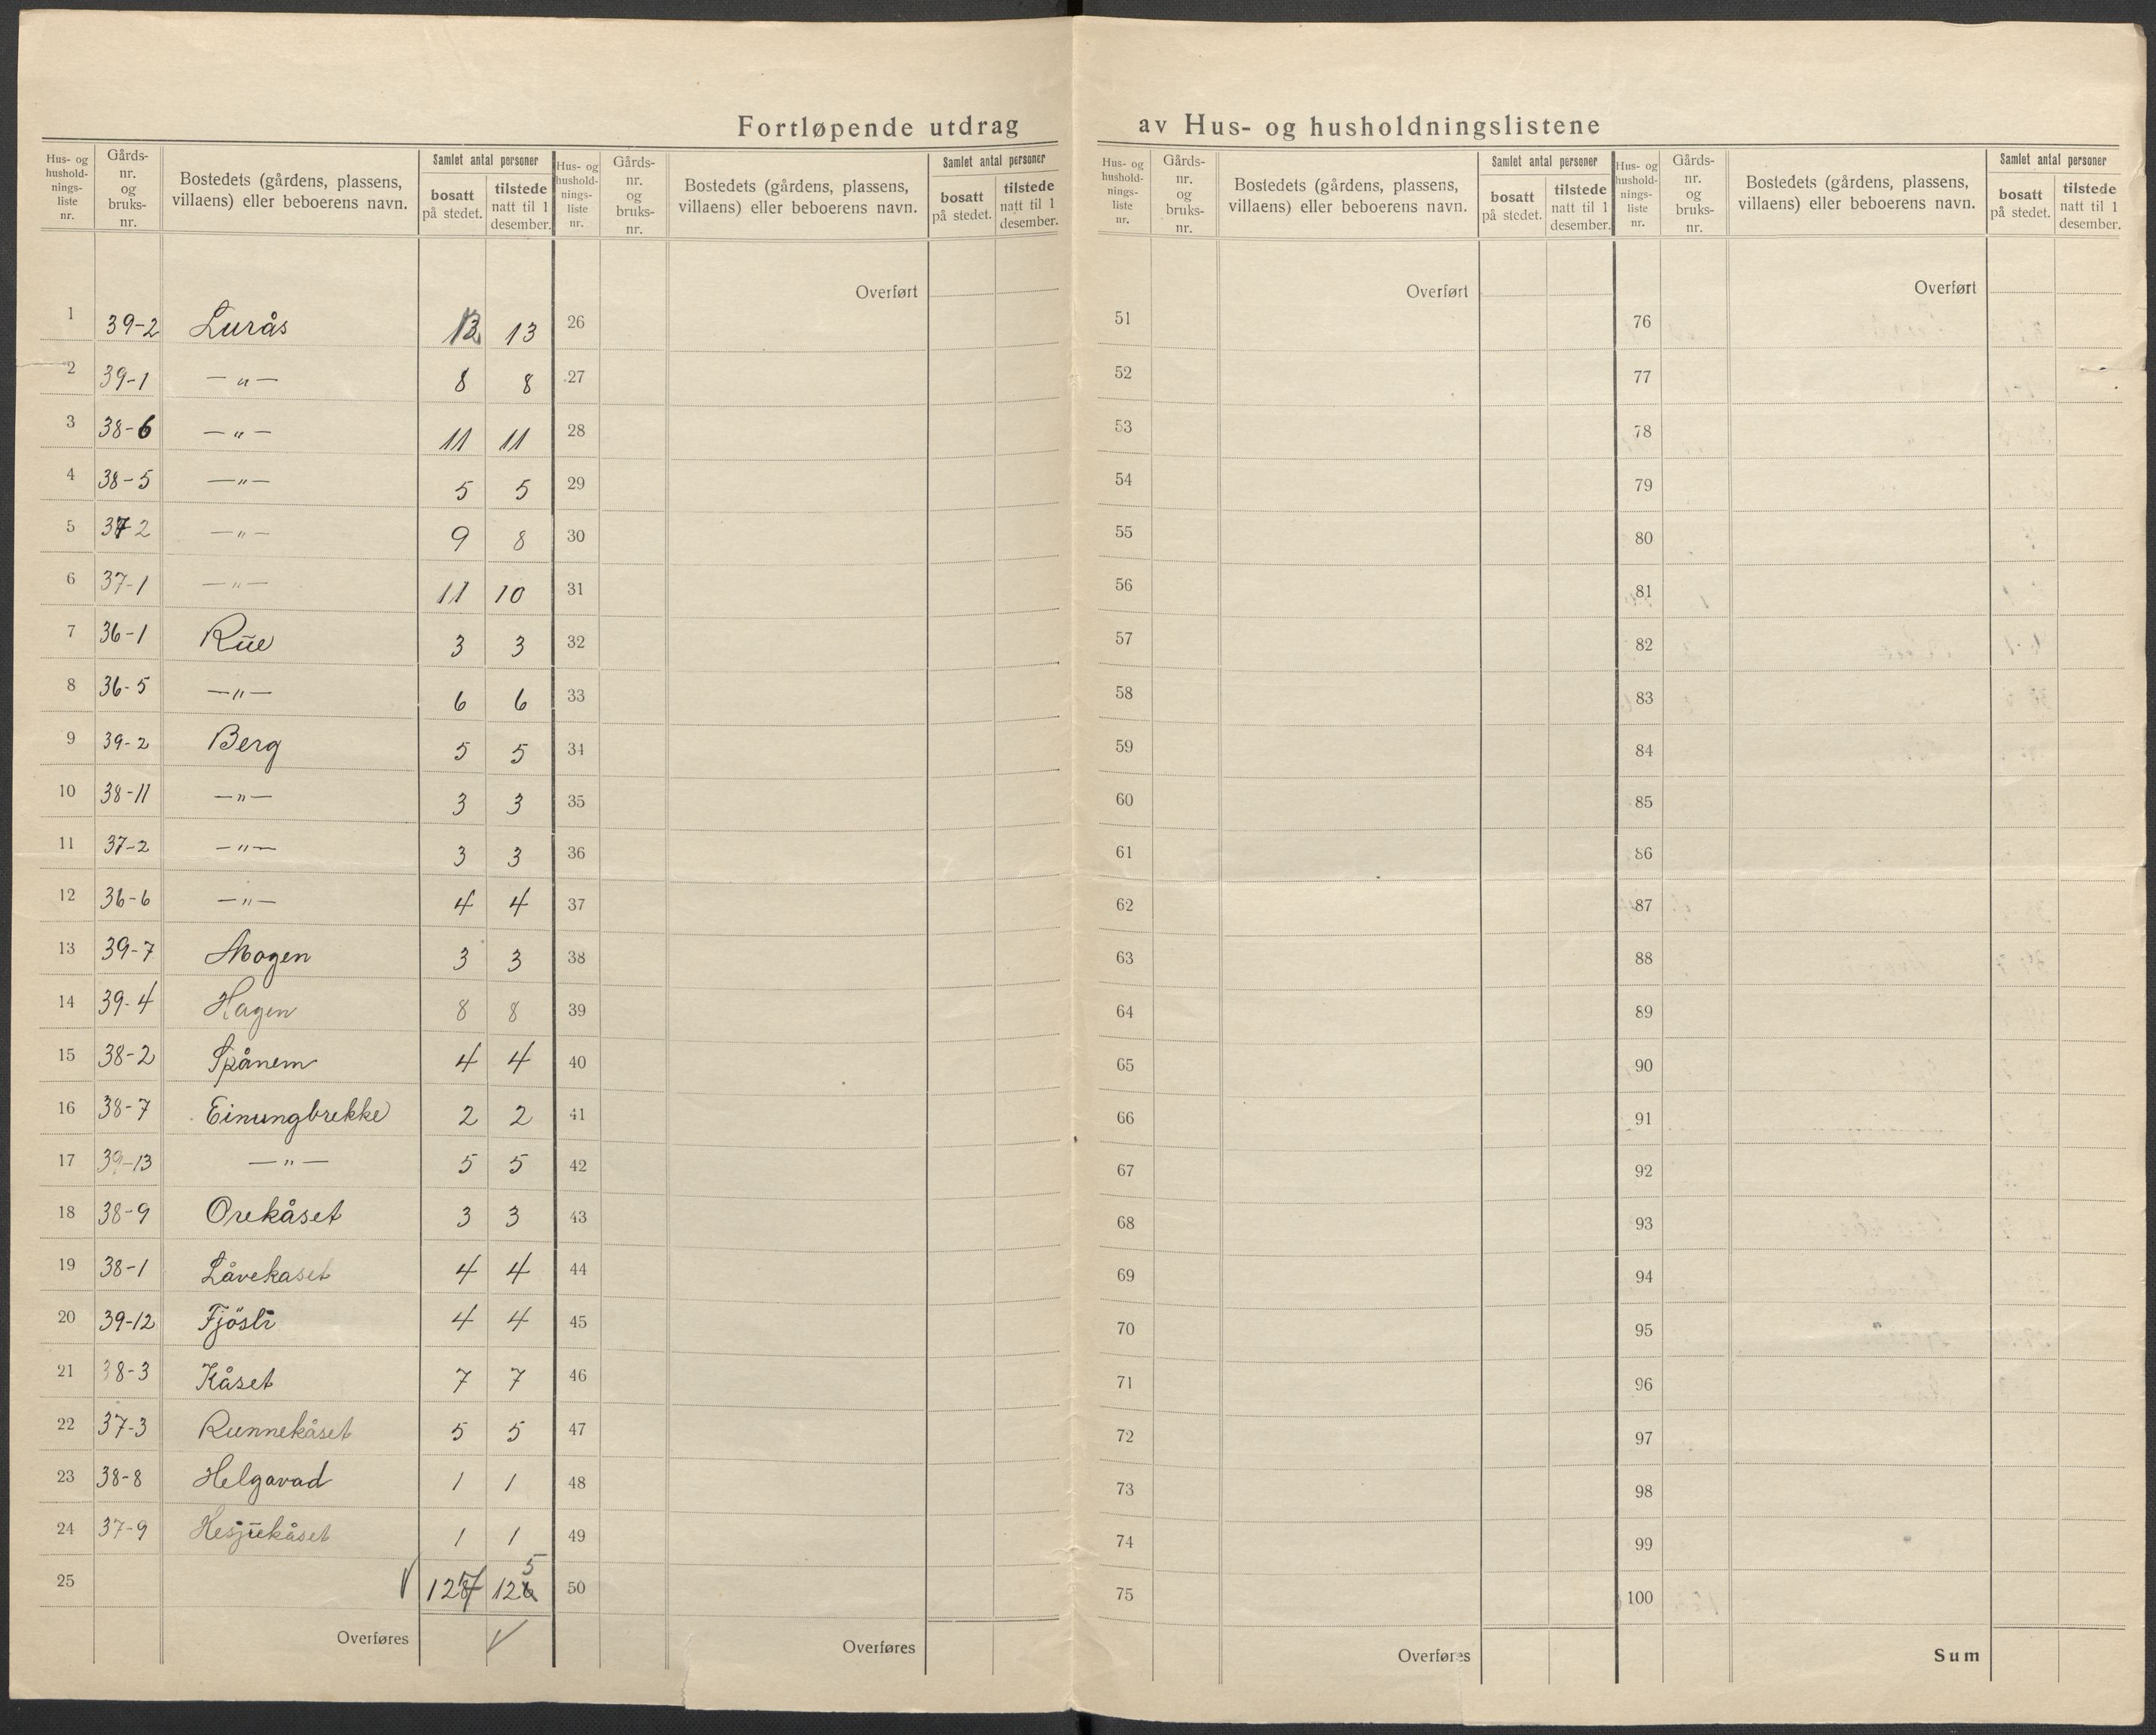 Fortløpende utdrag av Hus- og husholdningslistene
Hus- og hushold-nings-liste nr. Gårds-nr. og bruks-nr. Bostedets (gårdens, plassens, villaens) eller beboerens navn. Samlet antal personer bosatt på stedet. tilstede natt til 1 desember.
Hus- og hushold-nings-liste nr. Gårds-nr. og bruks-nr. Bostedets (gårdens, plassens, villaens) eller beboerens navn. Samlet antal personer bosatt på stedet. tilstede natt til 1 desember.
Hus- og hushold-nings-liste nr. Gårds-nr. og bruks-nr. Bostedets (gårdens, plassens, villaens) eller beboerens navn. Samlet antal personer bosatt på stedet. tilstede natt til 1 desember.
Hus- og hushold-nings-liste nr. Gårds-nr. og bruks-nr. Bostedets (gårdens, plassens, villaens) eller beboerens navn. Samlet antal personer bosatt på stedet. tilstede natt til 1 desember.
Overført Overført Overført
1 39-2 Lurås 12 13 26 51 76
2 39-1 —"— 8 8 27 52 77
3 38-6 —"— 11 11 28 53 78
4 38-5 —"— 5 5 29 54 79
5 37 2 —"— 9 8 30 55 80
6 37-1 —"— 11 10 31 56 81
7 36-1 Rūe 3 3 32 57 82
8 36-5 —"— 6 6 33 58 83
9 39-2 Berg 5 5 34 59 84
10 38-11 —"— 3 3 35 60 85
11 37-2 —"— 3 3 36 61 86
12 36-6 —"— 4 4 37 62 87
13 39-7 Mogen 3 3 38 63 88
14 39-4 Hagen 8 8 39 64 89
15 38-2 Spånem 4 4 40 65 90
16 38-7 Einungbrekke 2 2 41 66 91
17 39-13 —"— 5 5 42 67 92
18 38-9 Orekåset 3 3 43 68 93
19 38-1 Låvekaset 4 4 44 69 94
20 39-12 Fjösli 4 4 45 70 95
21 38-3 Kåset 7 7 46 71 96
22 37-3 Runnekåset 5 5 47 72 97
23 38-8 Helgavad 1 1 48 73 98
24 37-9 Hesjūekåset 1 1 49 74 99
25 127 125 50 75 100
Overføres Overføres Overføres Sum